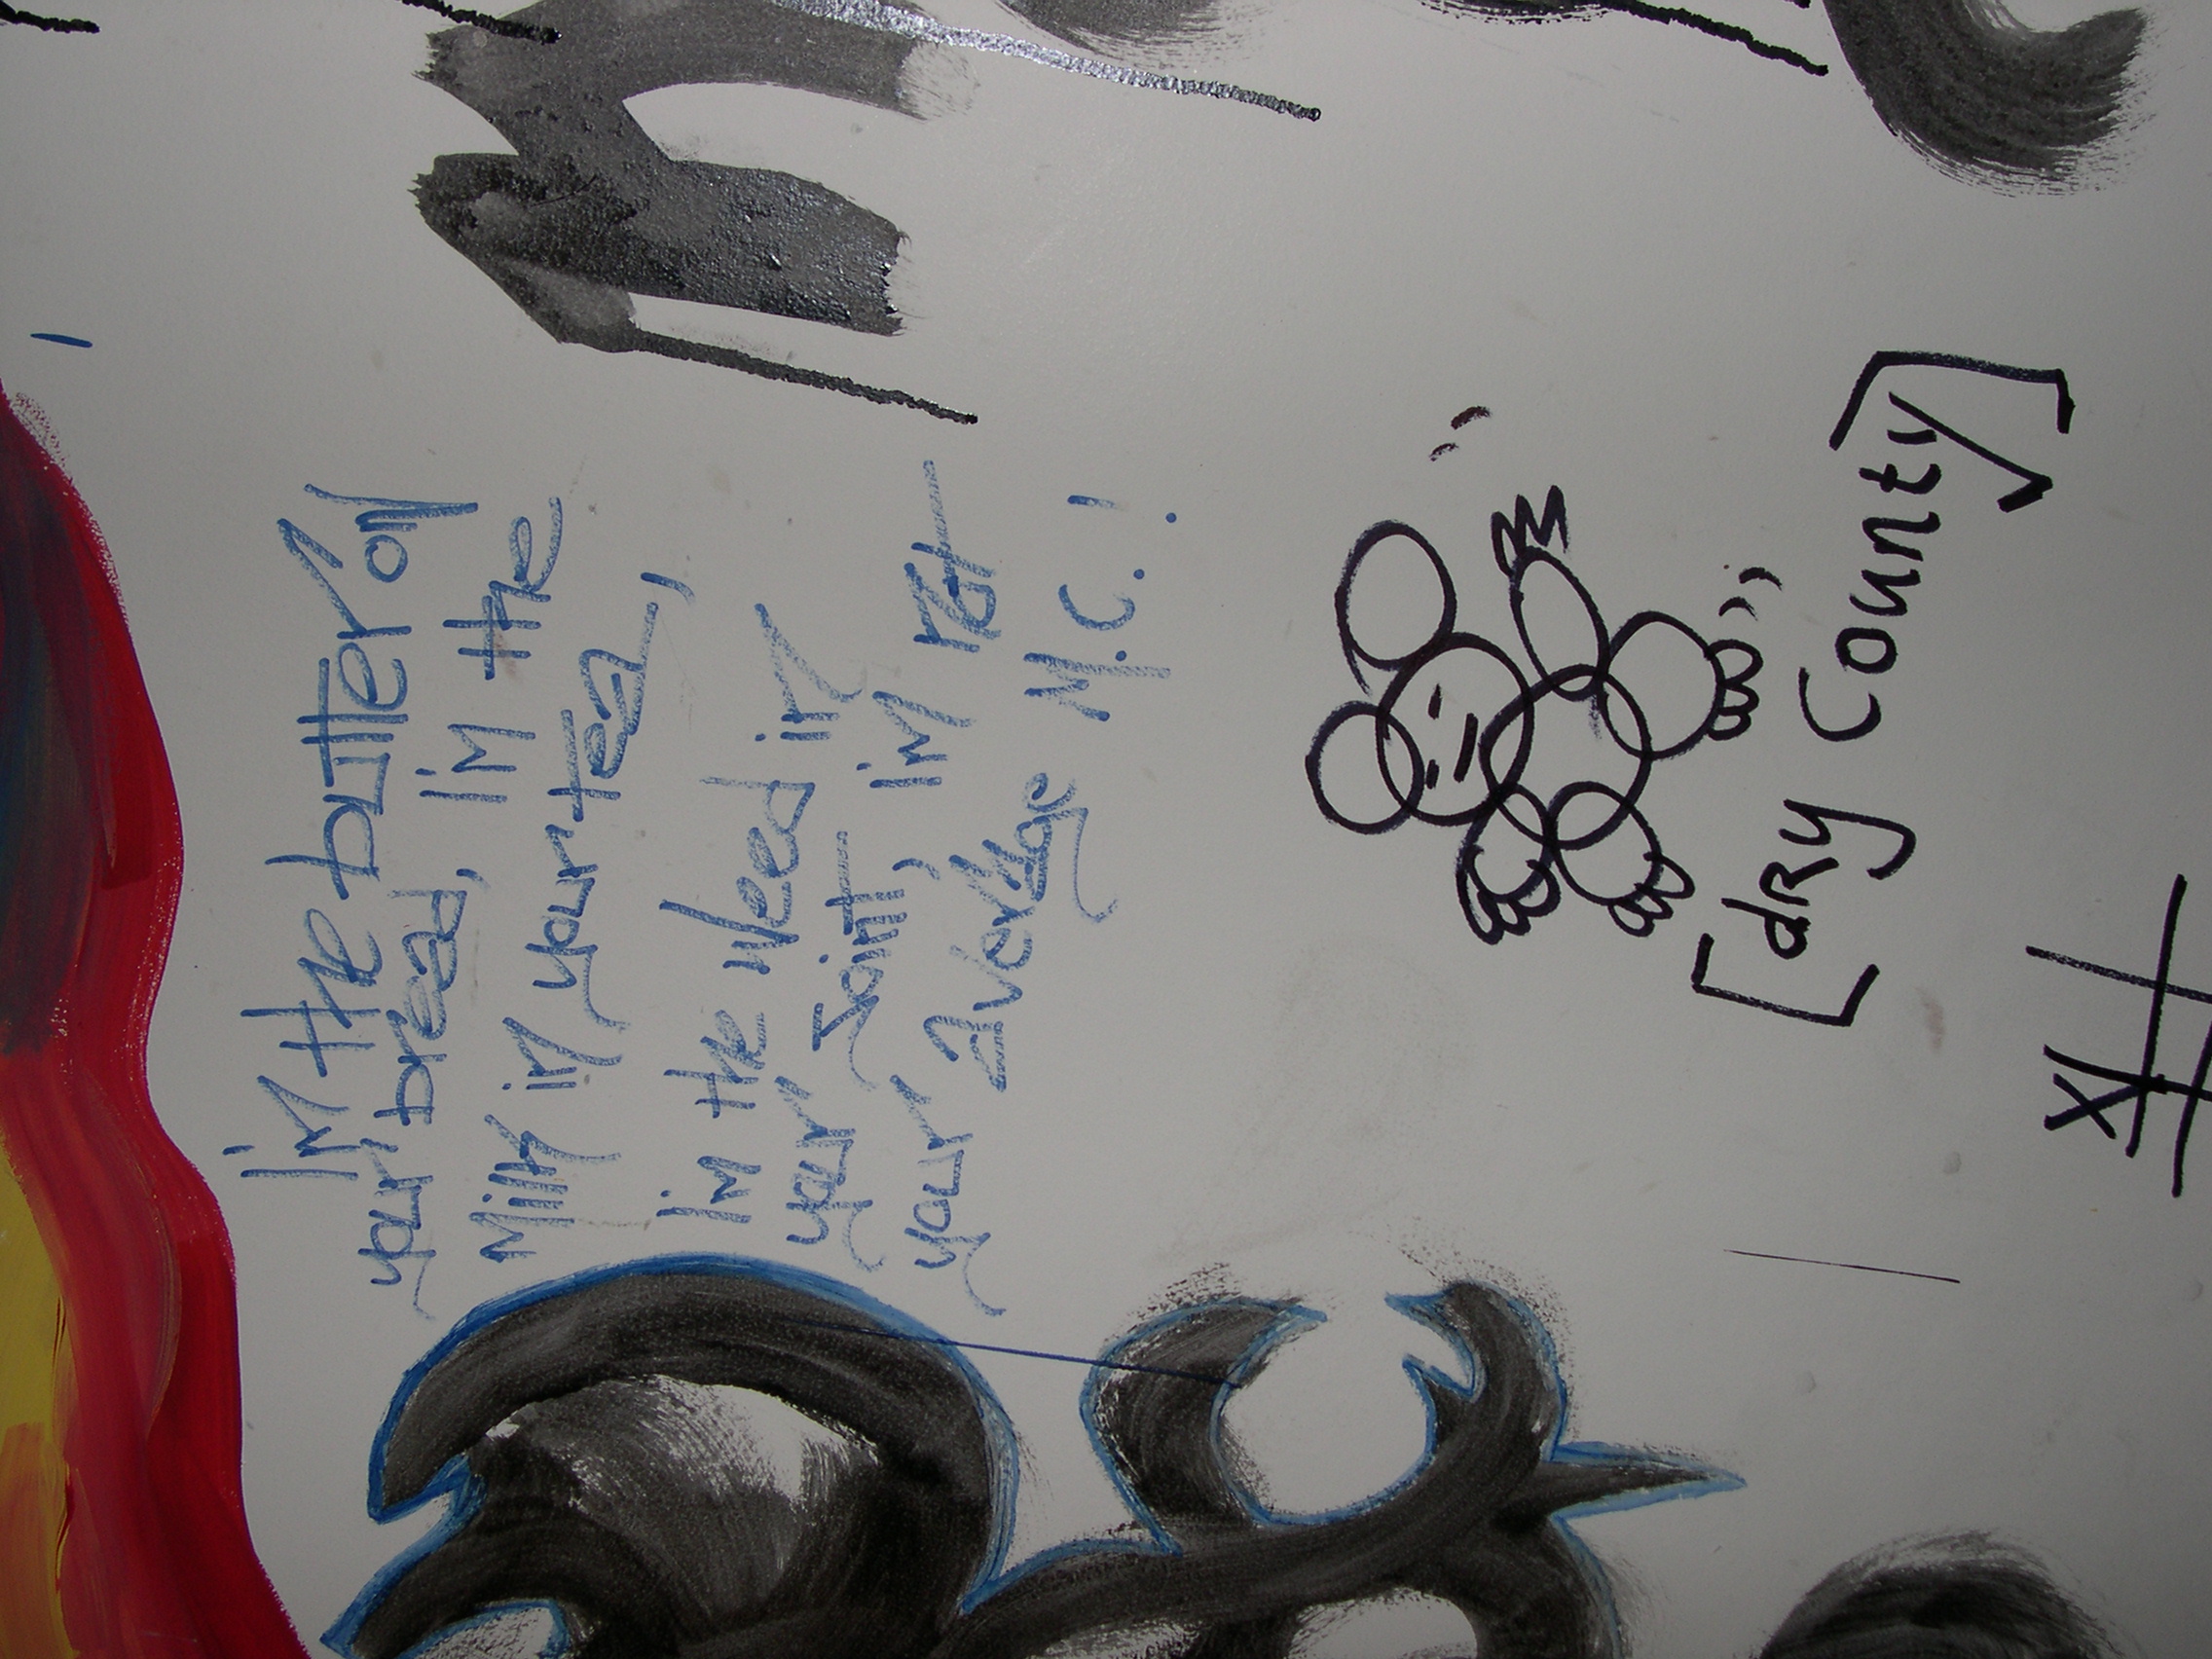 I'm the butter on
your bread, I'm the
milk in your tea,
I'm the weed in
your Joint, I'm not
your average M.C.!
[dry County]
X